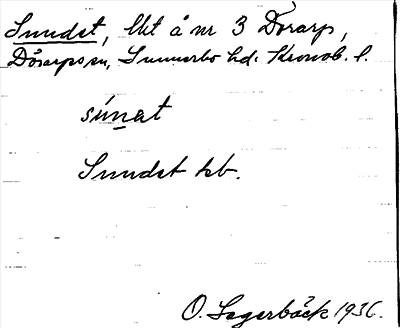 Sundet, lht å nr 3 Dörarp,
Dörarps sn, Sunnerbo hd. Kronob. l.
súnat
Sundet hb.
O. Lagerbäck 1936.